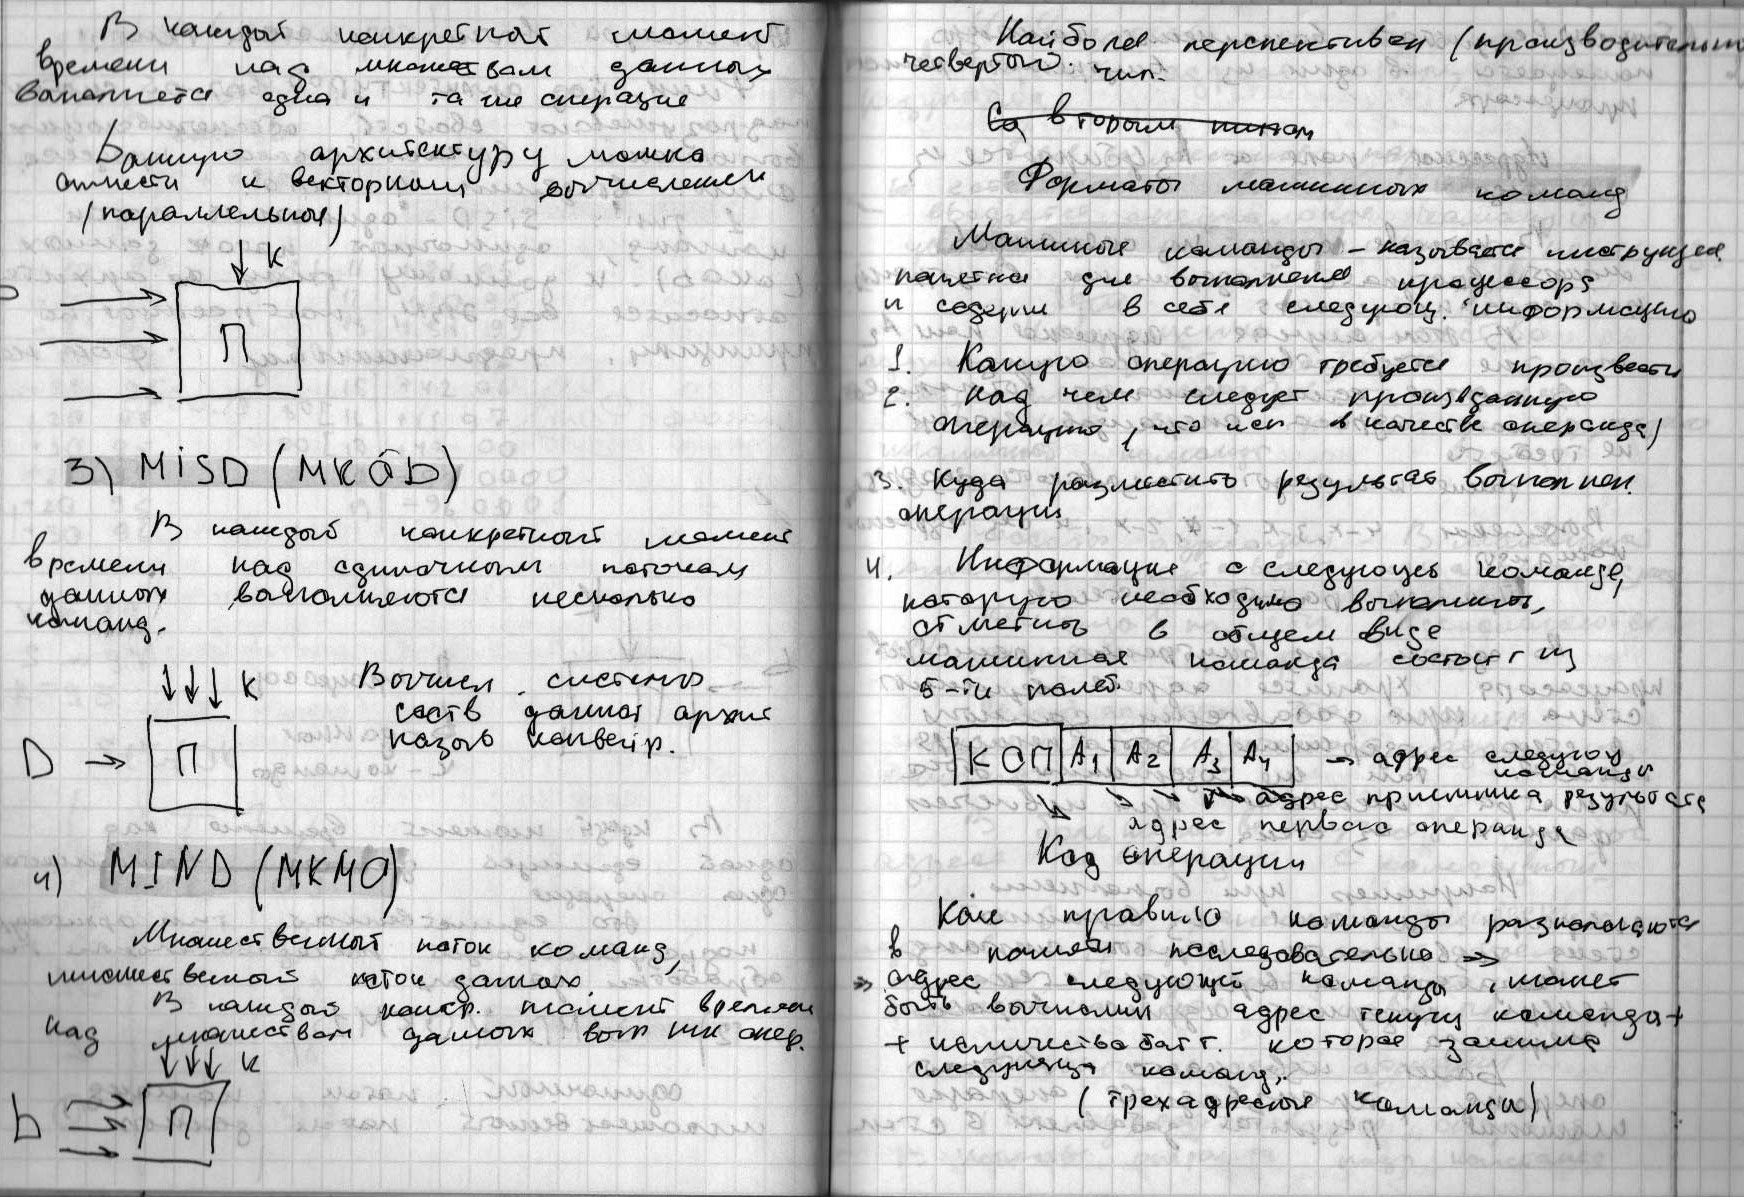 В каждый конкретный момент
времени над множеством данных
выполняется одна и та же операция
Данную архитектуру можно
отнести к векторным вычислениям
(параллельным)
К
П
3) MISD (МКОД)
В каждый конкретный момент
времени над одиночным потоком
данных выполняются несколько
команд.
К
D → П
Вычисл. системы
соств данной архит
назыв конвейр.
4) MIND (МКМО)
Множественный поток команд,
множественный поток данных.
В каждый конкр. момент времени
над множеством данных вып мн опер.
К
D П
Наиболее перспективен (производительн
четвертый тип.
Со вторым типом
Форматы машинных команд
Машинные команды – называется инструкция
понятная для выполнения процессора
и содерж в себе следующ. информацию
1. Какую операцию требуется произвести
2. Над чем следует произв данную
операцию, (что исп в качестве операнда)
3. Куда разместить результат выполнен.
операции
4. Информация о следующей команде,
которую необходимо выполнить,
отметить в общем виде
машинная команда состоит из
5-ти полей.
КОП А1 А2 А3 А4 → адрес следующ
команды
адрес приемника результата
адрес первого операнда
Код операции
Как правило команды располагаются
в памяти последовательно ⇒
⇒ адрес следующей команды может
быть вычислен адрес текущ команды +
+ количества байт. которое занима
следующая команд.
(трехадресные команды)